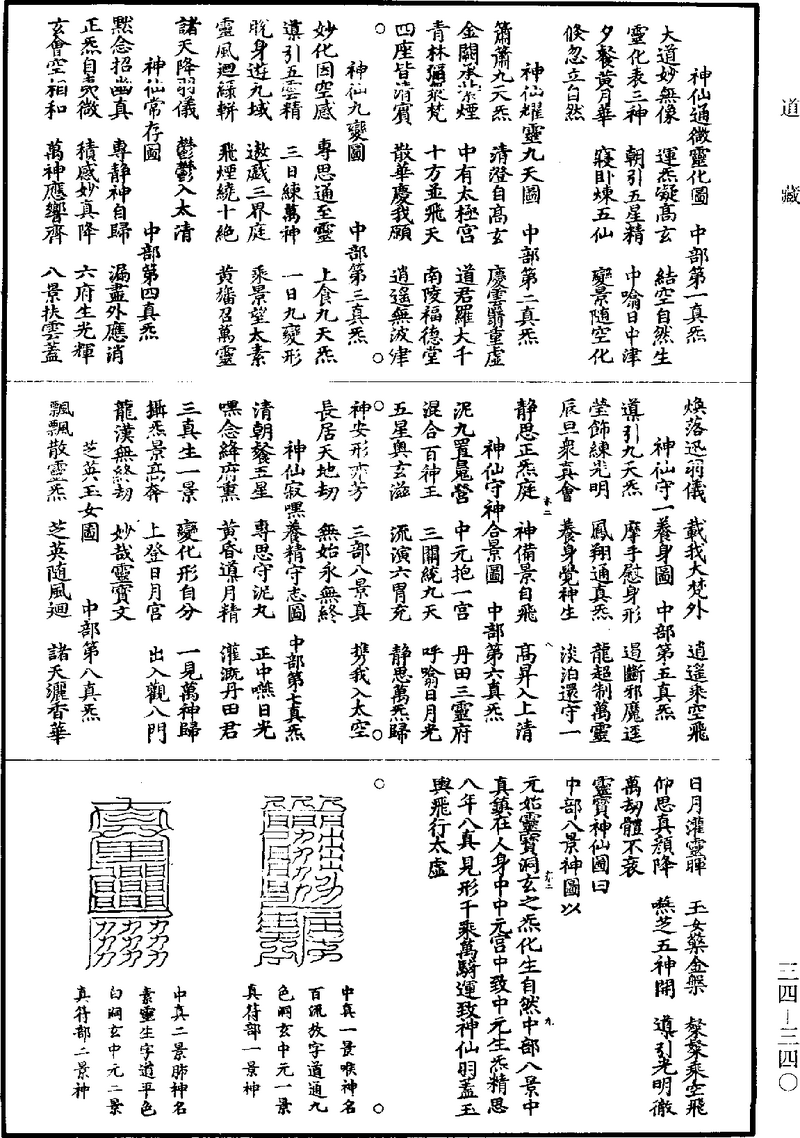 道藏
神仙通微靈化圖　中部第一真炁
大道妙無像　運炁凝高玄　結空自然生
靈化表三神　朝引五星精　中喻日中津
夕餐黃月華　寢卧煉五仙　變景隨空化
倏忽立自然
神仙耀靈九天圖　中部第二真炁
蕭蕭九天炁　清澄自高玄　慶雲翳重虛
金闕承紫煙　中有太極宮　道君羅大千
青林彌飛梵　十方並飛天　南陵福德堂
四座皆清賓　散華慶我願　逍遙無波津
神仙九變圖　中部第三真炁
妙化因空感　專思通至靈　上食九天炁
導引五雲精　三日練萬神　一日九變形
脫身遊九域　遨戲三界庭　乘景登太素
靈風迴綠輧　飛煙繞十絕　黃旛召萬靈
諸天降羽儀　鬱鬱入太清
神仙常存圖　中部第四真炁
默念招幽真　專静神自歸　漏盡外應消
正炁自夷微　積感妙真降　六府生光輝
玄會空相和　萬神應響齊　八景扶雲蓋
煥落迅羽儀　載我大梵外　逍遙乘空飛
神仙守一養身圖　中部第五真炁
導引九天炁　摩手慰身形　遏斷邪魔逕
瑩飾練光明　鳳翔通真炁　龍超制萬靈
辰旦眾真會　養身覺神生　淡泊還守一
静思正炁庭　神備景自飛　高昇入上清
神仙守神合景圖　中部第六真炁
泥九置魂營　中元抱一宮　丹田三靈府
混合百神王　三關統九天　呼喻日月光
五星奧玄滋　流演六胃充　静思萬炁歸
神安形亦芳　三部八景真　攜我入太空
長居天地劫　無始永無終
神仙寂嘿養精守志圖　中部第七真炁
清朝餐五星　專思守泥丸　正中嚥日光
嘿念絳府裏　黃昏導月精　灌溉丹田君
三真生一景　變化形自分　一見萬神歸
攝炁景忽奔　上登日月宮　出入觀八門
龍漢無終劫　妙哉靈寶文
芝英玉女圖　中部第八真炁
飄飄散靈炁　芝英隨風迴　諸天灑香華
日月灌靈暉　玉女獻金盤　粲粲乘空飛
仰思真顏降　嚥芝五神開　導引光明徹
萬劫體不衰
靈寶神仙圖曰
中部八景神圖以
元始靈寶洞玄之炁化生自然中部八景中
真鎮在人身中中元宮中致中元生炁精思
八年八真見形千乘萬騎運致神仙羽蓋玉
輿飛行太虛
中真一景喉神名
百流放字道通九
色洞玄中元一景
真符部一景神
中真二景肺神名
素靈生字道平色
白洞玄中元二景
真符部二景神
三四—三四〇